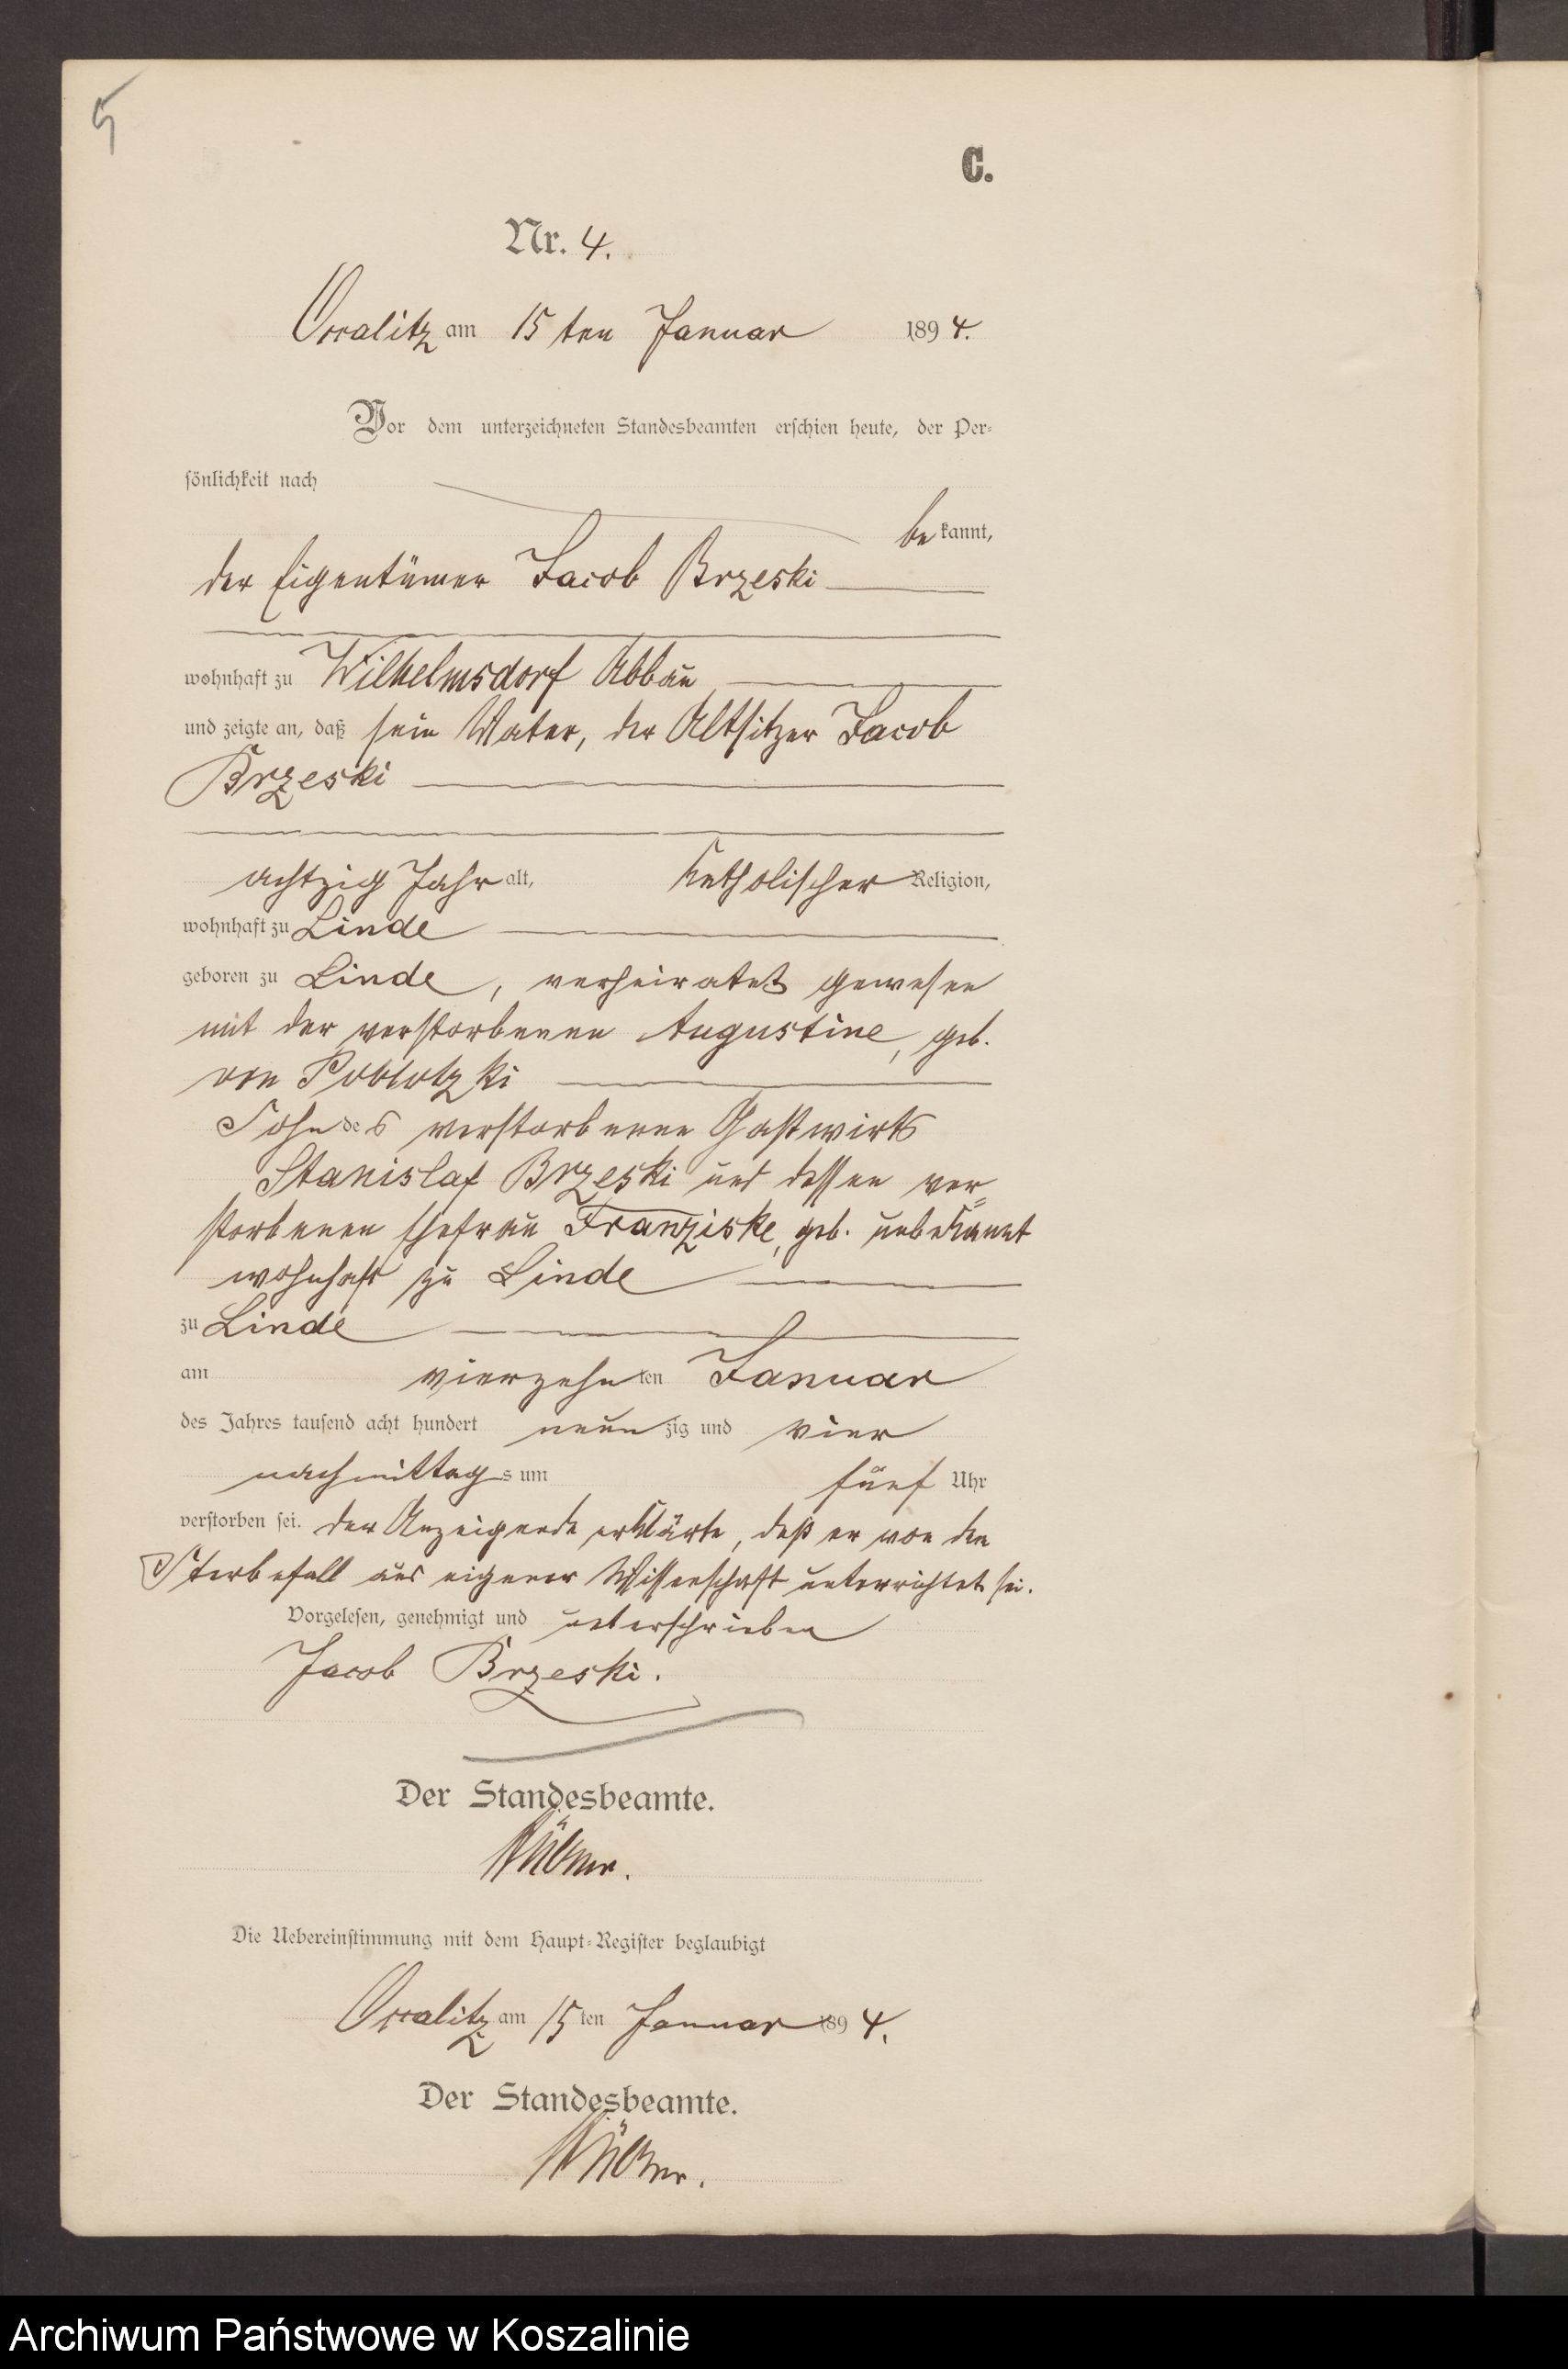 5
C.
Nr. 4.
Ossalitz am 15 ten Januar 1894.
Vor dem unterzeichneten Standesbeamten erschien heute, der Per-
sönlichkeit nach
bekannt,
der Eigentümer Jacob Brzeski
wohnhaft zu Wilhelmsdorf Abbau
und zeigte an, daß sein Vater, der Altsitzer Jacob
Brzeski
achtzig Jahr alt, katholischer Religion,
wohnhaft zu Linde
geboren zu Linde, verheiratet gewesen
mit der verstorbenen Augustine, geb.
von Poblotzki
Sohn des verstorbenen Gastwirts
Stanislaf Brzeski und dessen ver=
storbenen Ehefrau Franziske, geb. unbekannt
wohnhaft zu Linde
zu Linde
am vierzehnten Januar
des Jahres tausend acht hundert neunzig und vier
nachmittags um fünf Uhr
verstorben sei. Der Anzeigende erklärte, daß er von den
Sterbefall aus eigener Wissenschaft unterrichtet sei.
Vorgelesen, genehmigt und unterschrieben
Jacob Brzeski.
Der Standesbeamte.
Die Uebereinstimmung mit dem Haupt-Register beglaubigt
Ossalitz am 15ten Januar 1894.
Der Standesbeamte.
Archiwum Państwowe w Koszalinie